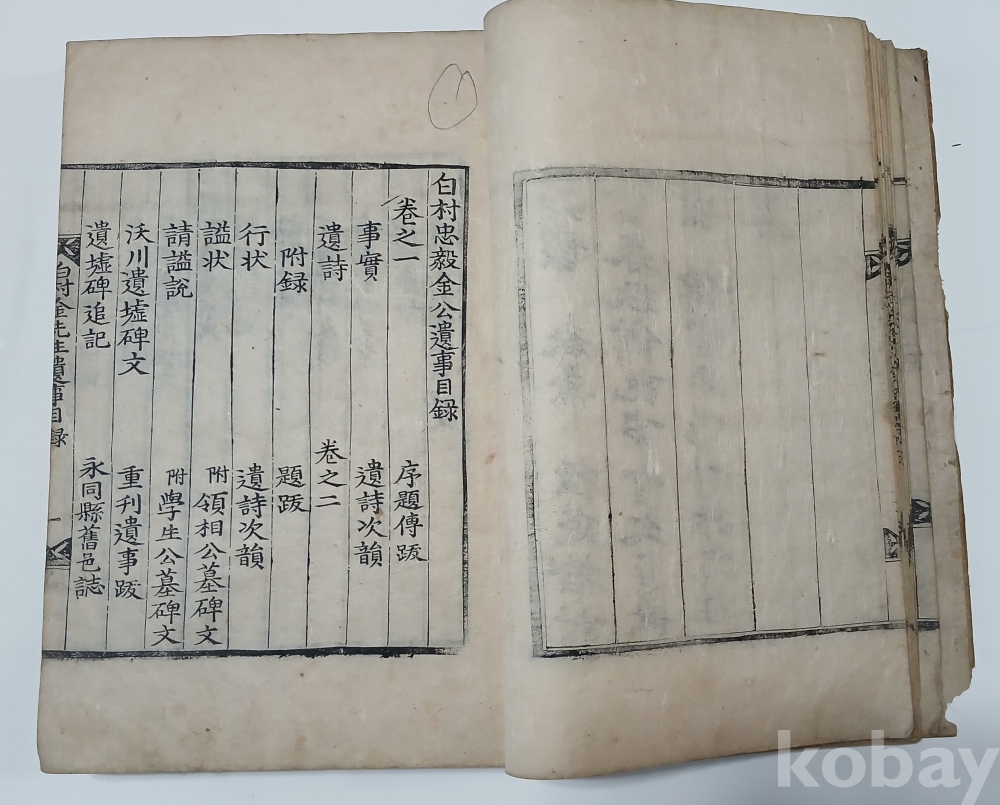 白村忠毅金公遺事目録
卷之一 序題傳跋
事實 遺詩次韻
遺詩 卷之二
附録 題跋
行状 遺詩次韻
謚状 附領相公墓碑文
請謚説 附學生公墓碑文
沃川遺墟碑文 重刊遺事跋
遺墟碑追記 永同縣舊邑誌
白村金先生遺事目録 一
kobay